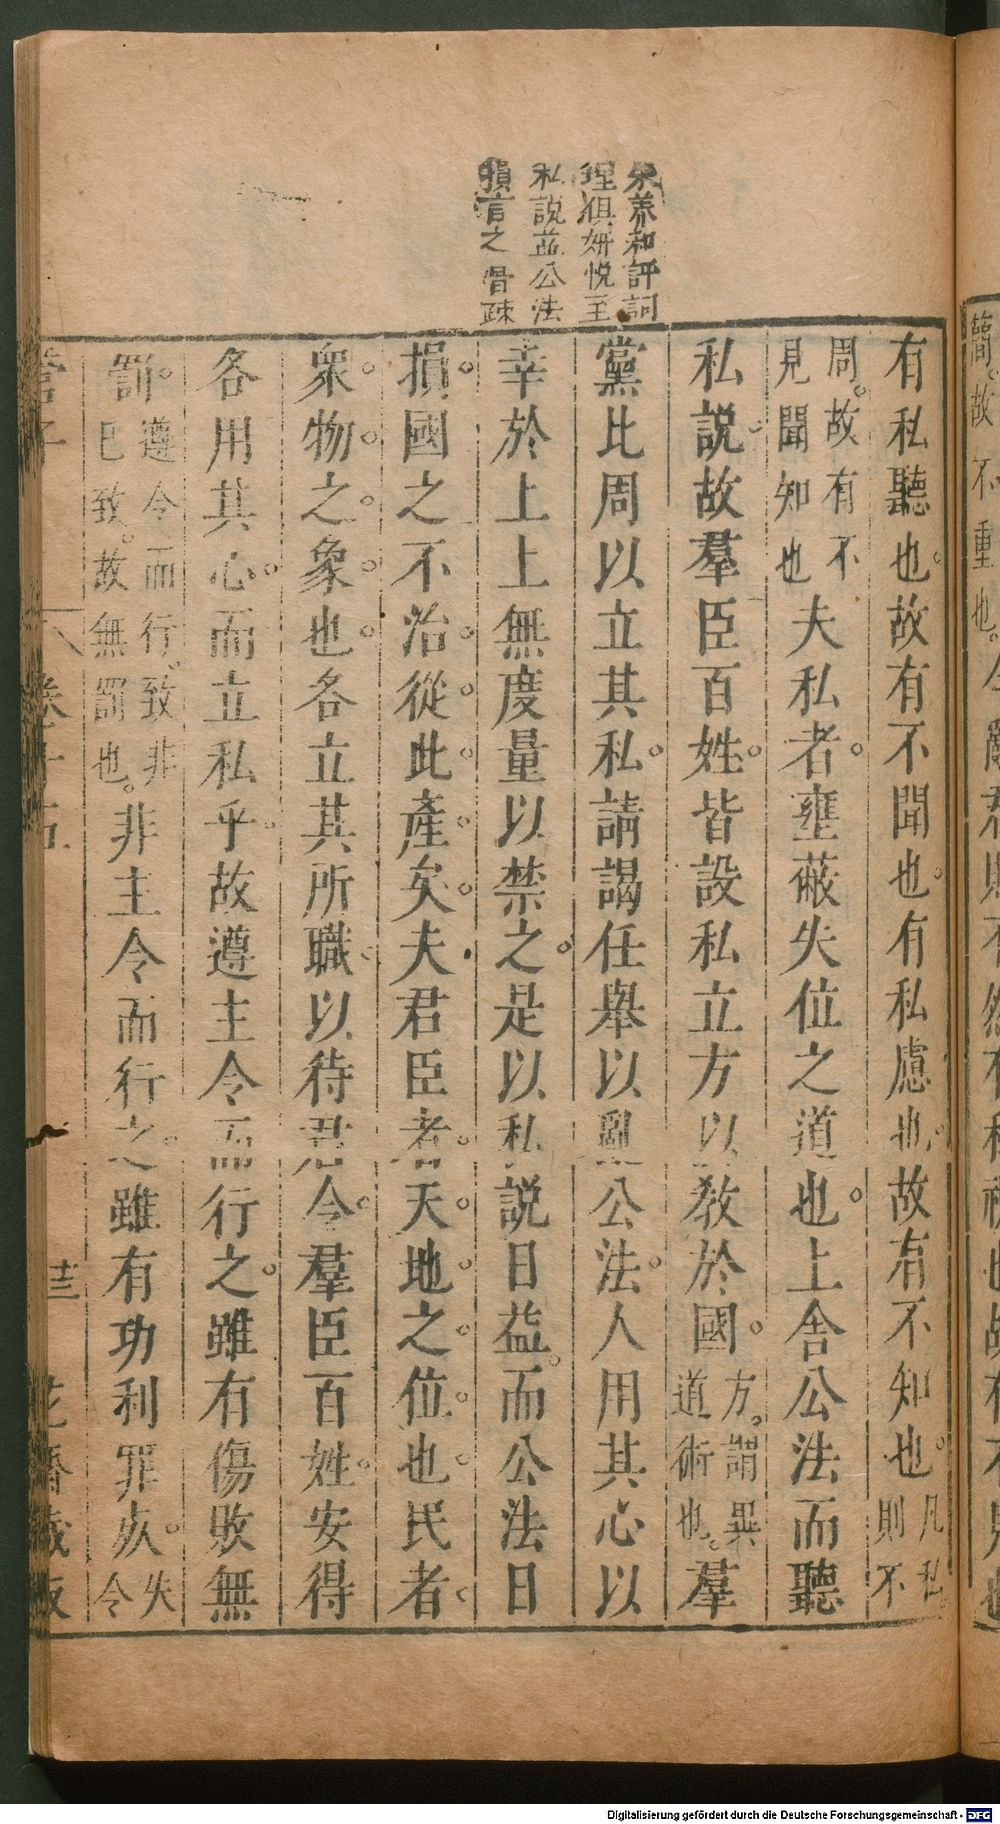 朱養和評詞
理俱妍悅至
私說益公法
損言之骨疎
有私聽也故有不聞也有私慮也故有不知也凡私則不
周故有不見聞知也夫私者壅蔽失位之道也上舍公法而聽
私說故羣臣百姓皆設私立方以敎於國方謂異道術也羣
黨比周以立其私請謁任舉以亂公法人用其心以
幸於上上無度量以禁之是以私說日益而公法日
損國之不治從此產矣夫君臣者天地之位也民者
衆物之象也各立其所職以待君令羣臣百姓安得
各用其心而立私乎故遵主令而行之雖有傷敗無
罰遵令而行致非已致故無罰也非主令而行之雖有功利罪㱙失令
管子
卷十五
十三
花齋藏板
簡故不重也
Digitalisierung gefördert durch die Deutsche Forschungsgemeinschaft - DFG